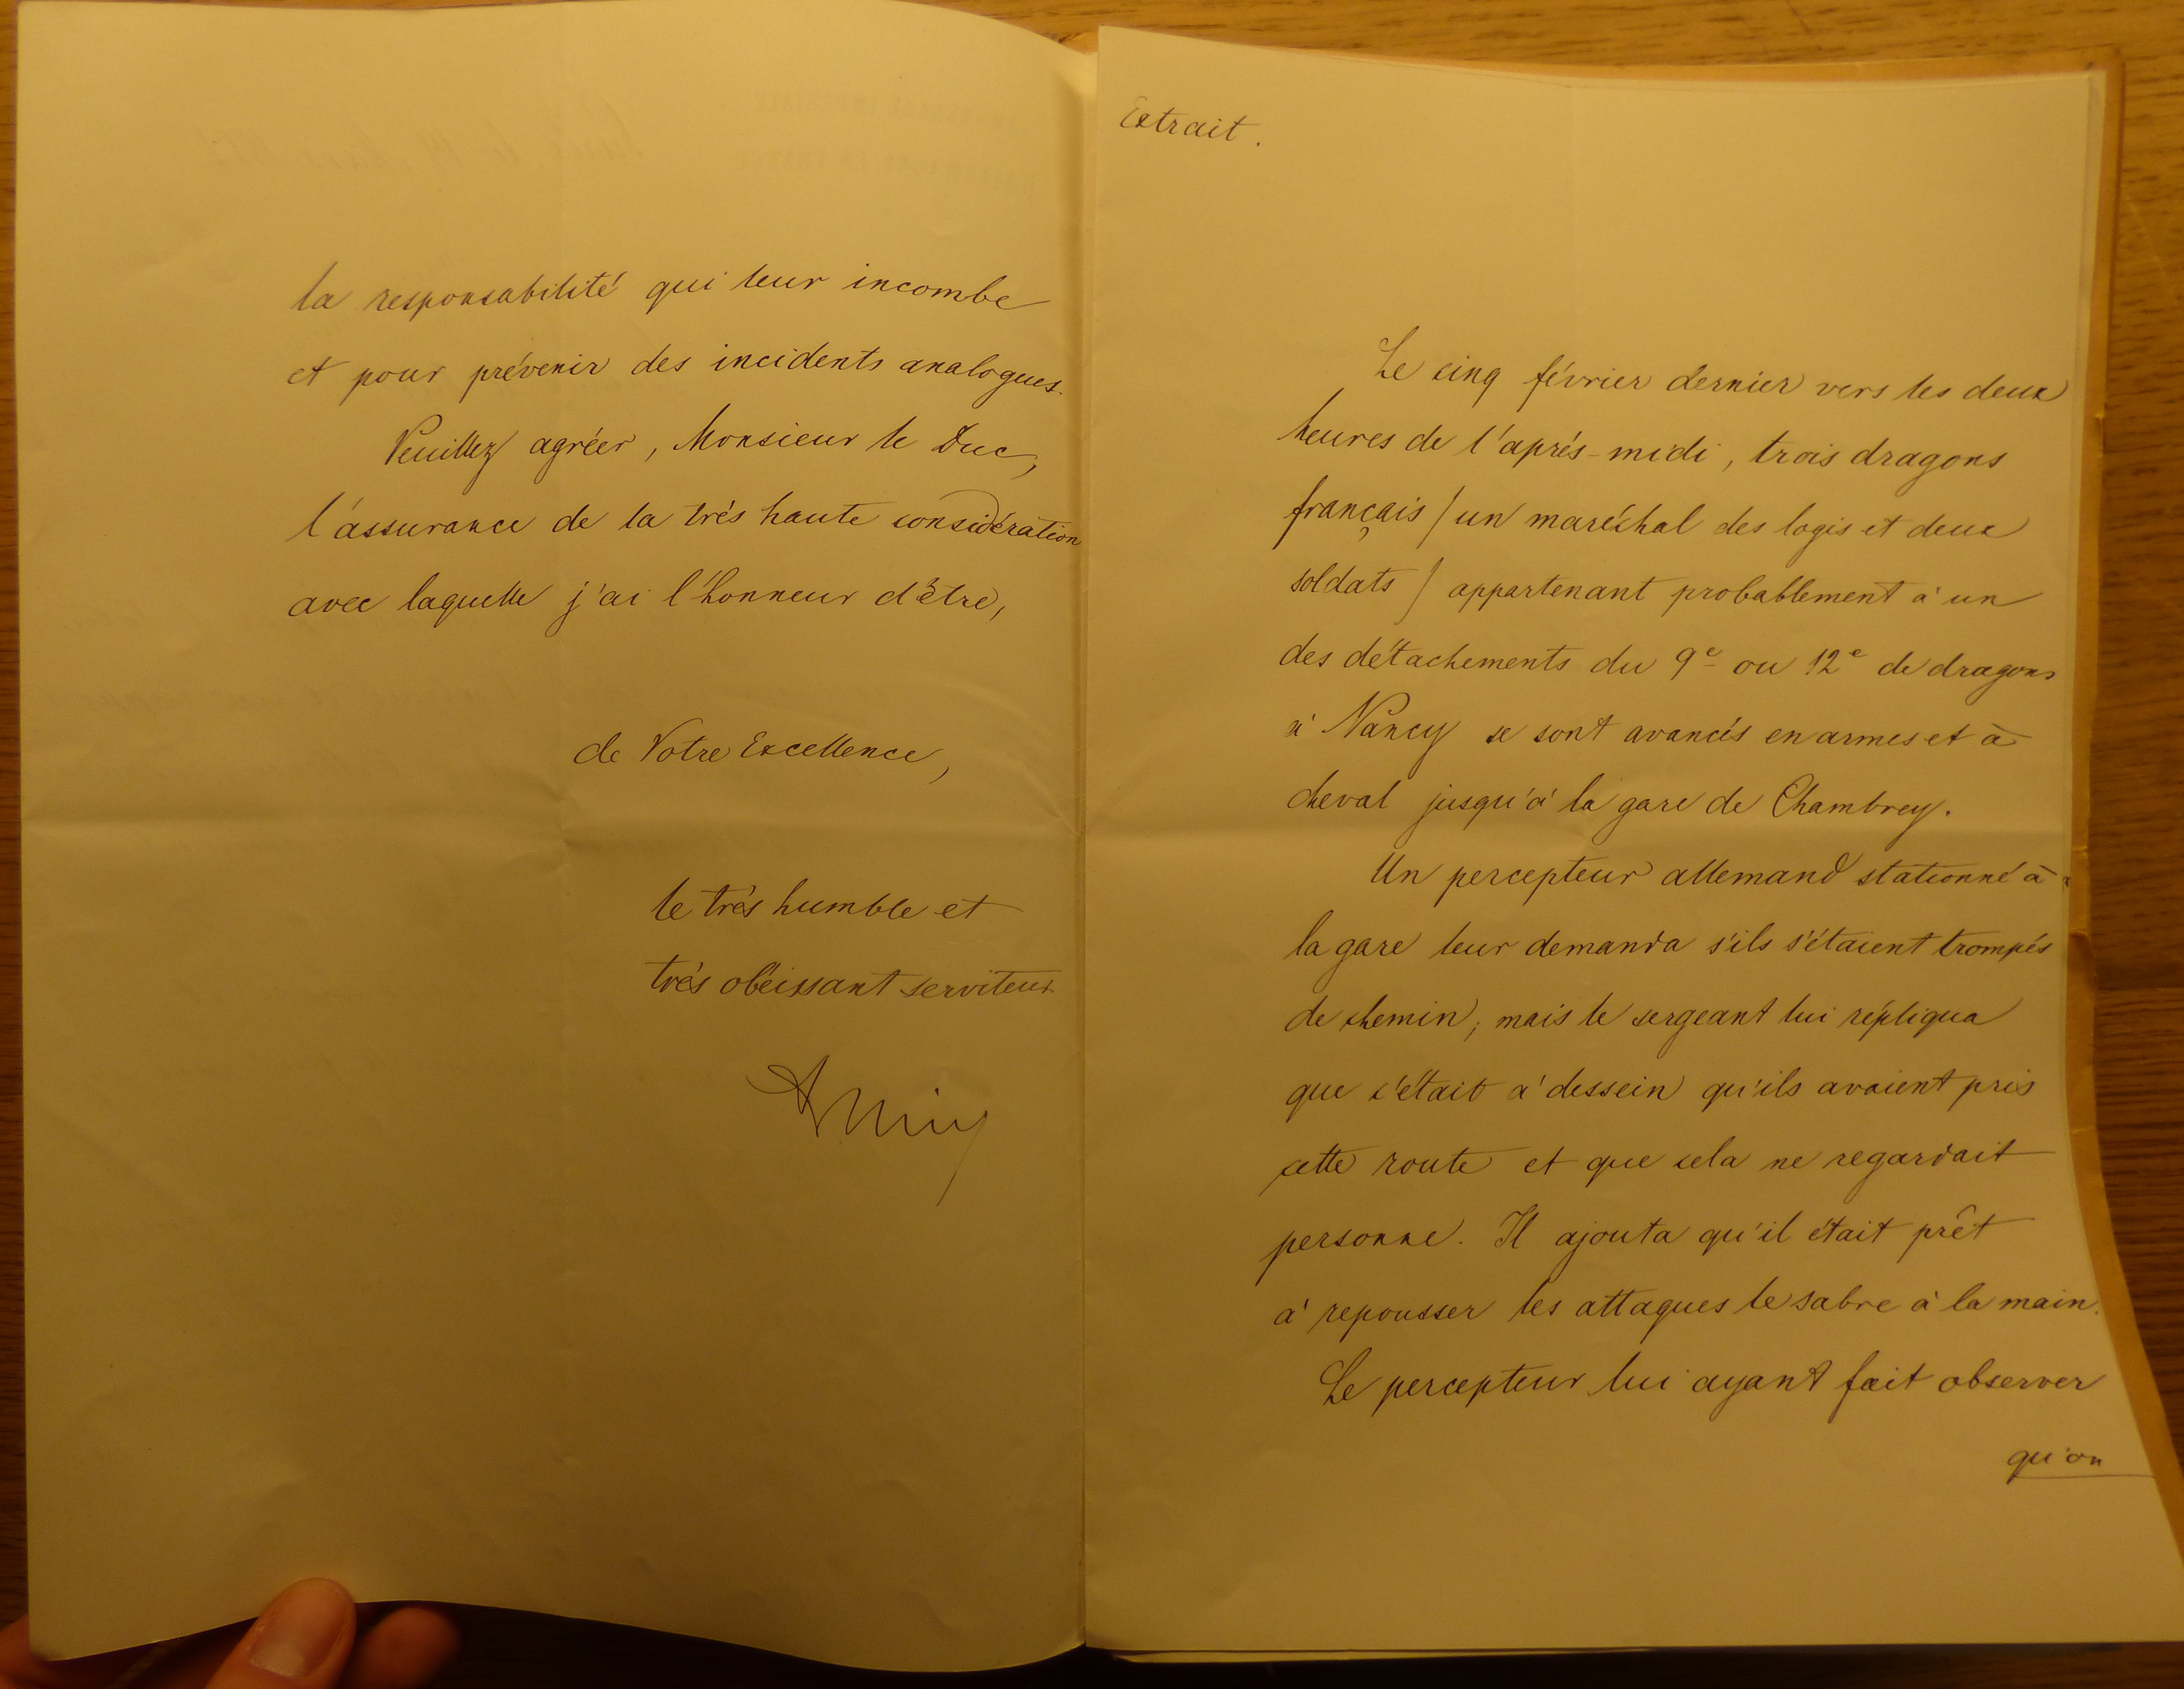 la responsabilité qui leur incombe
et pour prévenir des incidents analogues.
Veuillez agréer, Monsieur le Duc,
l'assurance de la très haute considération
avec laquelle j'ai l'honneur d'être,
de Votre Excellence,
le très humble et
très obéissant serviteur
Extrait.
Le cinq février dernier vers les deux
heures de l'après-midi, trois dragons
français / un maréchal des logis et deux
soldats / appartenant probablement à un
des détachements du 9e ou 12e de dragons
à Nancy se sont avancés en armes et à
cheval jusqu'à la gare de Chambrey.
Un percepteur allemand stationné à
la gare leur demanda s'ils s'étaient trompés
de chemin; mais le sergeant lui répliqua
que c'était à dessein qu'ils avaient pris
cette route et que cela ne regardait
personne. Il ajouta qu'il était prêt
à repousser les attaques le sabre à la main.
Le percepteur lui ayant fait observer
qu'on